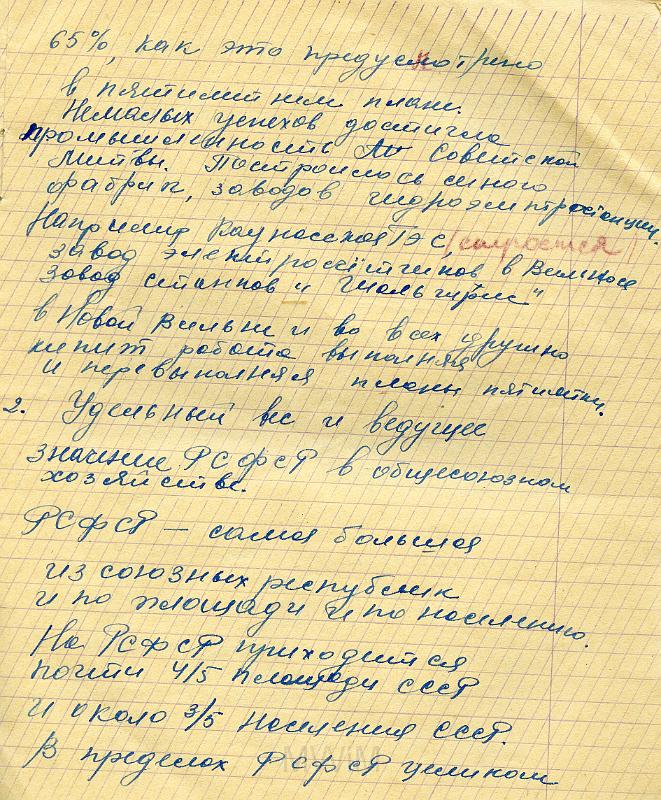 65%, как это предусмотрено
в пятилетнем плане.
Немалых успехов достигла
промышленность Советской
Литвы. Построилось много
фабрик, заводов гидроэлектростанции.
Например Каунасская ГЭС, (строется)
завод электросчётчиков в Вильнюсе
завод станков „Жальгирис"
в Новой Вильне и во всех дружно
кипит работа выполняя
и перевыполняя планы пятилетки.
2. Удельный вес и ведущее
значение РСФСР в общесоюзном
хозяйстве.
РСФСР – самая большая
из союзных республик
и по площади и по населению.
На РСФСР приходится
почти 4/5 площади СССР
и около 3/5 населения СССР.
В пределах РСФСР целиком